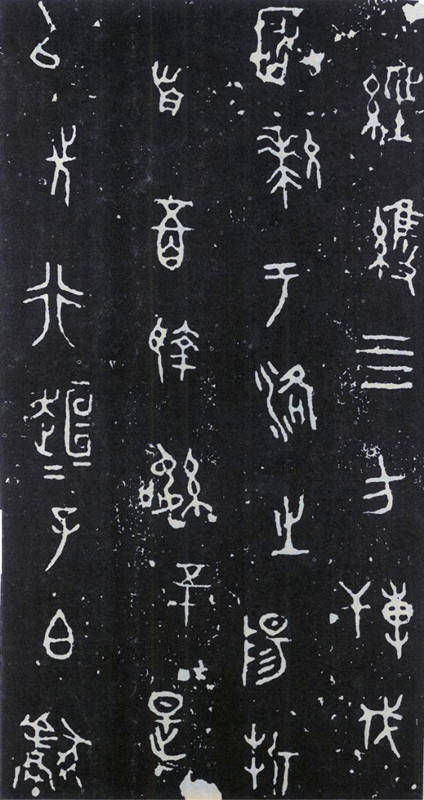 經維四方搏伐
玁狁于洛之陽折
首五百執訊五十是
以先行趄＝子白獻